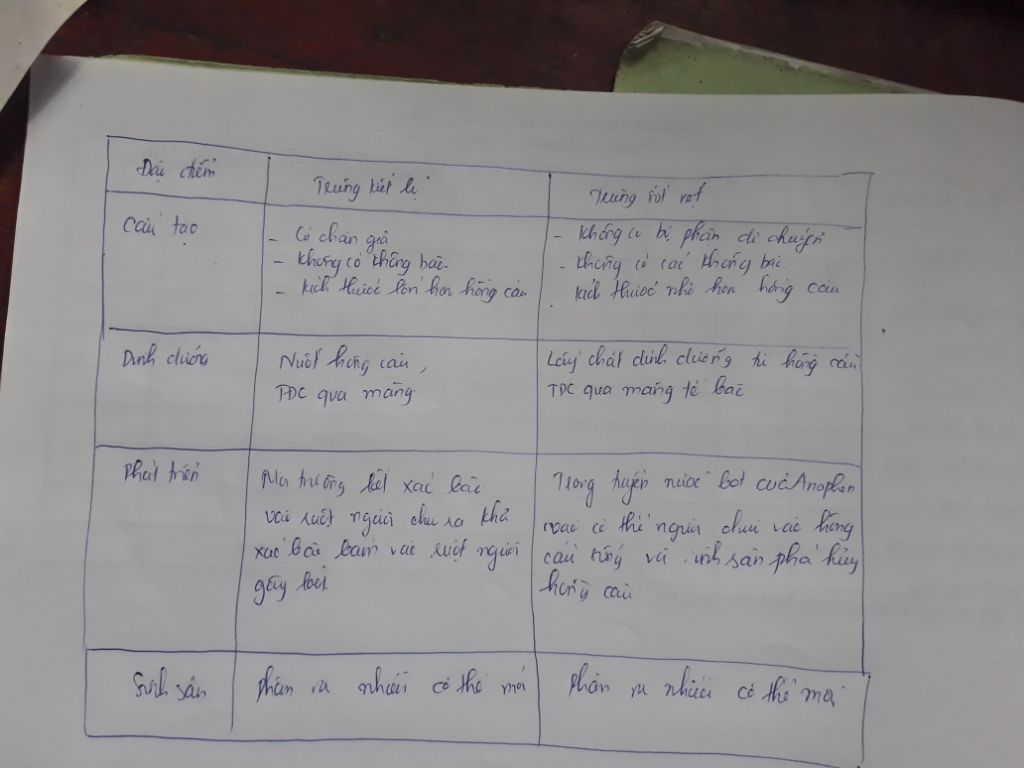 Đặc điểm
Trùng kiết lị
Trùng sốt rét
Cấu tạo
- Có chân giả
- Không có không bào.
- kích thước lớn hơn hồng cầu
- Không có bộ phận di chuyển
- Không có các không bào.
kích thước nhỏ hơn hồng cầu
Dinh dưỡng
Nuốt hồng cầu,
TĐC qua màng
Lấy chất dinh dưỡng từ hồng cầu
TĐC qua màng tế bào
Phát triển
Môi trường kết xác bào
vào ruột người chui ra khỏi
xác bào bám vào ruột người
gây loét
Trong tuyến nước bọt của Anophen
vào cơ thể người chui vào hồng
cầu sống và sinh sản phá hủy
hồng cầu
Sinh sản
phân ra nhiều cơ thể mới
phân ra nhiều cơ thể mới